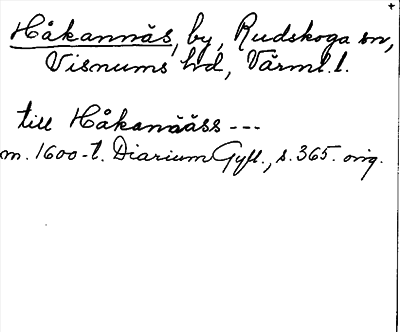 Håkannäs, by, Rudskoga sn,
Visnums hd, Värml. l.
till Håkanääss ---
m. 1600-t. Diarium Gyll., s. 365. orig.